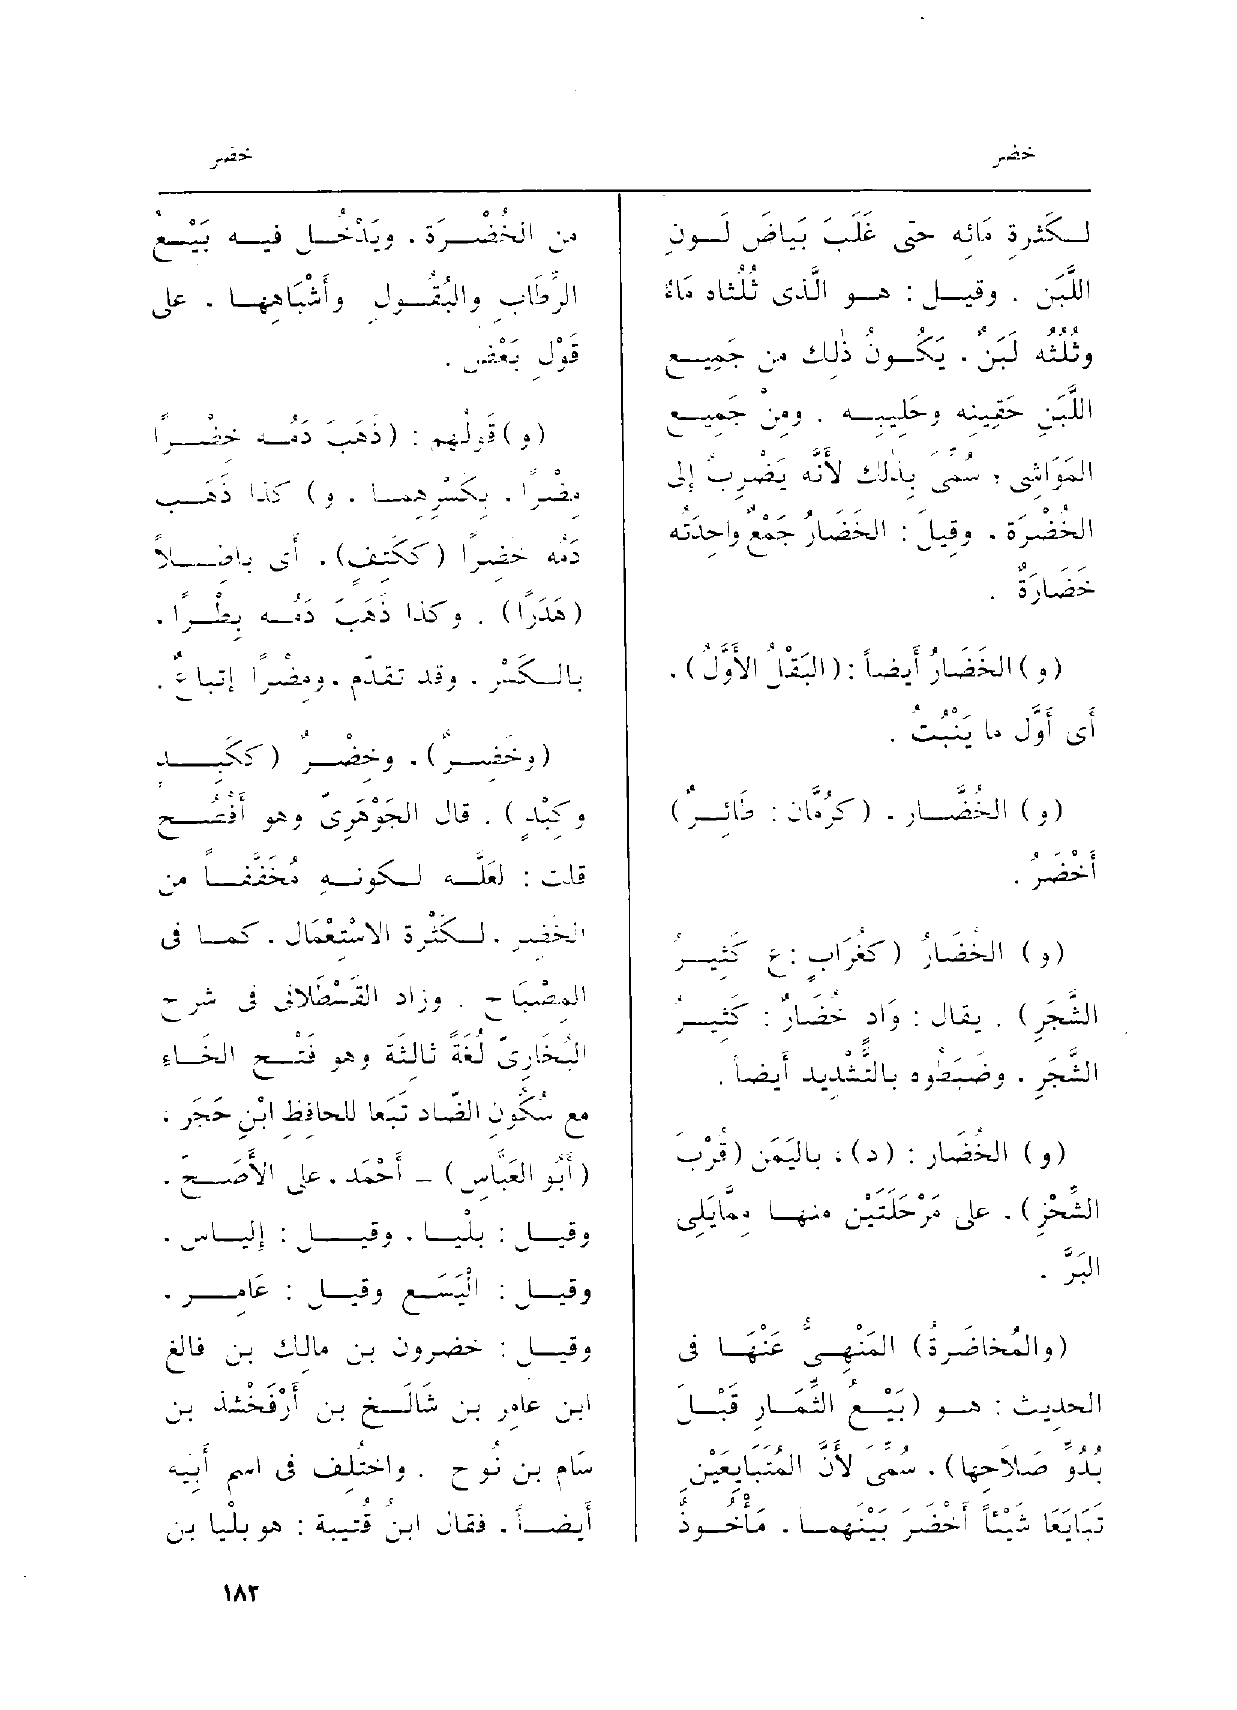 خضر
خضر
لكثرة مَائه حتى غَلَبَ بَيَاضَ لَونِ
اللَّبَنِ . وقيل : هو الَّذى ثُلُثاه مَاءٌ
وثُلُثُه لَبَنٌ . يَكُونُ ذٰلك من جَمِيع
اللَّبَنِ حَقِينِه وحَلِيبِه . ومِنْ جَمِيعِ
المَوَاشِى ، سُمِّىَ بِذٰلك لأَنَّه يَضْرِبُ إلى
الخُضْرَة . وقِيلَ : الخَضَارُ جَمْعٌ واحِدَتُه
خَضَارَةٌ .
(و) الخَضَارُ أَيضاً : (البَقْلُ الأَوَّلُ) .
أَى أَوَّلُ ما يَنْبُتُ .
(و) الخُضَّار . (كرُمَّان : طَائِرٌ)
أَخْضَرُ .
(و) الخُضَارُ (كغُرَابٍ : ع كَثِيرُ
الشَّجَرِ) . يقال : وَادٍ خُضَارٌ : كَثِيرُ
الشَّجَرِ . وضَبَطُوه بالتَّشْدِيد أَيضاً .
(و) الخُضَار : (د) ، بِاليَمَنِ (قُرْبَ
الشِّحْرِ) . على مَرْحَلَتَيْنِ منها مِمَّا يَلِى
البَرَّ .
(والمُخَاضَرةُ) المَنْهِىُّ عَنْهَا فى
الحديث : هو (بَيْعُ الثِّمَارِ قَبْلَ
بُدُوِّ صَلَاحِها) . سُمِّىَ لأَنَّ المُتَبَايِعَيْنِ
تَبَايَعَا شَيْئاً أَخْضَرَ بَيْنَهما . مَأْخُوذٌ
من الخُضْرَة . ويَدْخُل فيه بَيْعُ
الرِّطَابِ والبُقُولِ وأَشْبَاهِها . على
قَوْلِ بَعْضٍ .
(و) قَولُهم : (ذَهَبَ دَمُه خِضْرًا
مِضْرًا . بِكَسْرِهِمَا . و) كَذا ذَهَب
دَمُه خَضِرًا (ككَتِفٍ) . أَى باطِلاً
(هَدَرًا) . وكذا ذَهَبَ دَمُه بِطْرًا .
بالكَسْرِ . وقد تقدّم . ومِضْرًا إتباعٌ .
(وخَضِرٌ) . وخِضْرٌ (ككَبِدٍ
وكِبْدٍ) . قال الجَوْهَرِىّ وهو أَفْصَحُ
قلت : لَعَلَّه لكونه مُخَفَّفاً من
الخَضِر . لكَثْرة الاسْتِعْمَالِ . كما فى
المِصْبَاح . وزاد القَسْطَلانِى فى شرح
البُخَارِىّ لُغَةً ثالثَةً وهو فَتْح الخَاءِ
مع سُكُون الضَّاد تَبَعا للحافِظِ ابْنِ حَجَرٍ ،
(أَبُو العَبَّاسِ) – أَحْمَد . على الأَصَحّ .
وقيل : بَلْيَا . وقيل : إلياس .
وقيل : الْيَسَع وقيل : عَامِر .
وقيل : خضرون بن مالك بن فالغ
ابن عامر بن شَالَخ بن أَرْفَخْشَذ بن
سَام بن نُوح . واختُلِف فى اسم أَبيه
أَيضاً . فقال ابنُ قُتَيبة : هو بلْيا بن
١٨٢